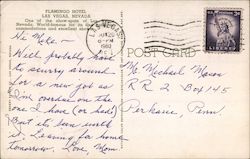 FLAMINGO HOTEL
LAS VEGAS, NEVADA
One of the show-spots of Las
Nevada. World-famous for its
commodations and excellent
LAS VEGAS
1960
POST CARD
Hi Mike —
Well probably have
to scurry around
for a new job as
overstayed on the
one I have (or had)
But its been
Leaving for home
tomorrow. Love, Mom.
Mr Michael Mason
RR 2 Box 145
Perkasie, Penn.